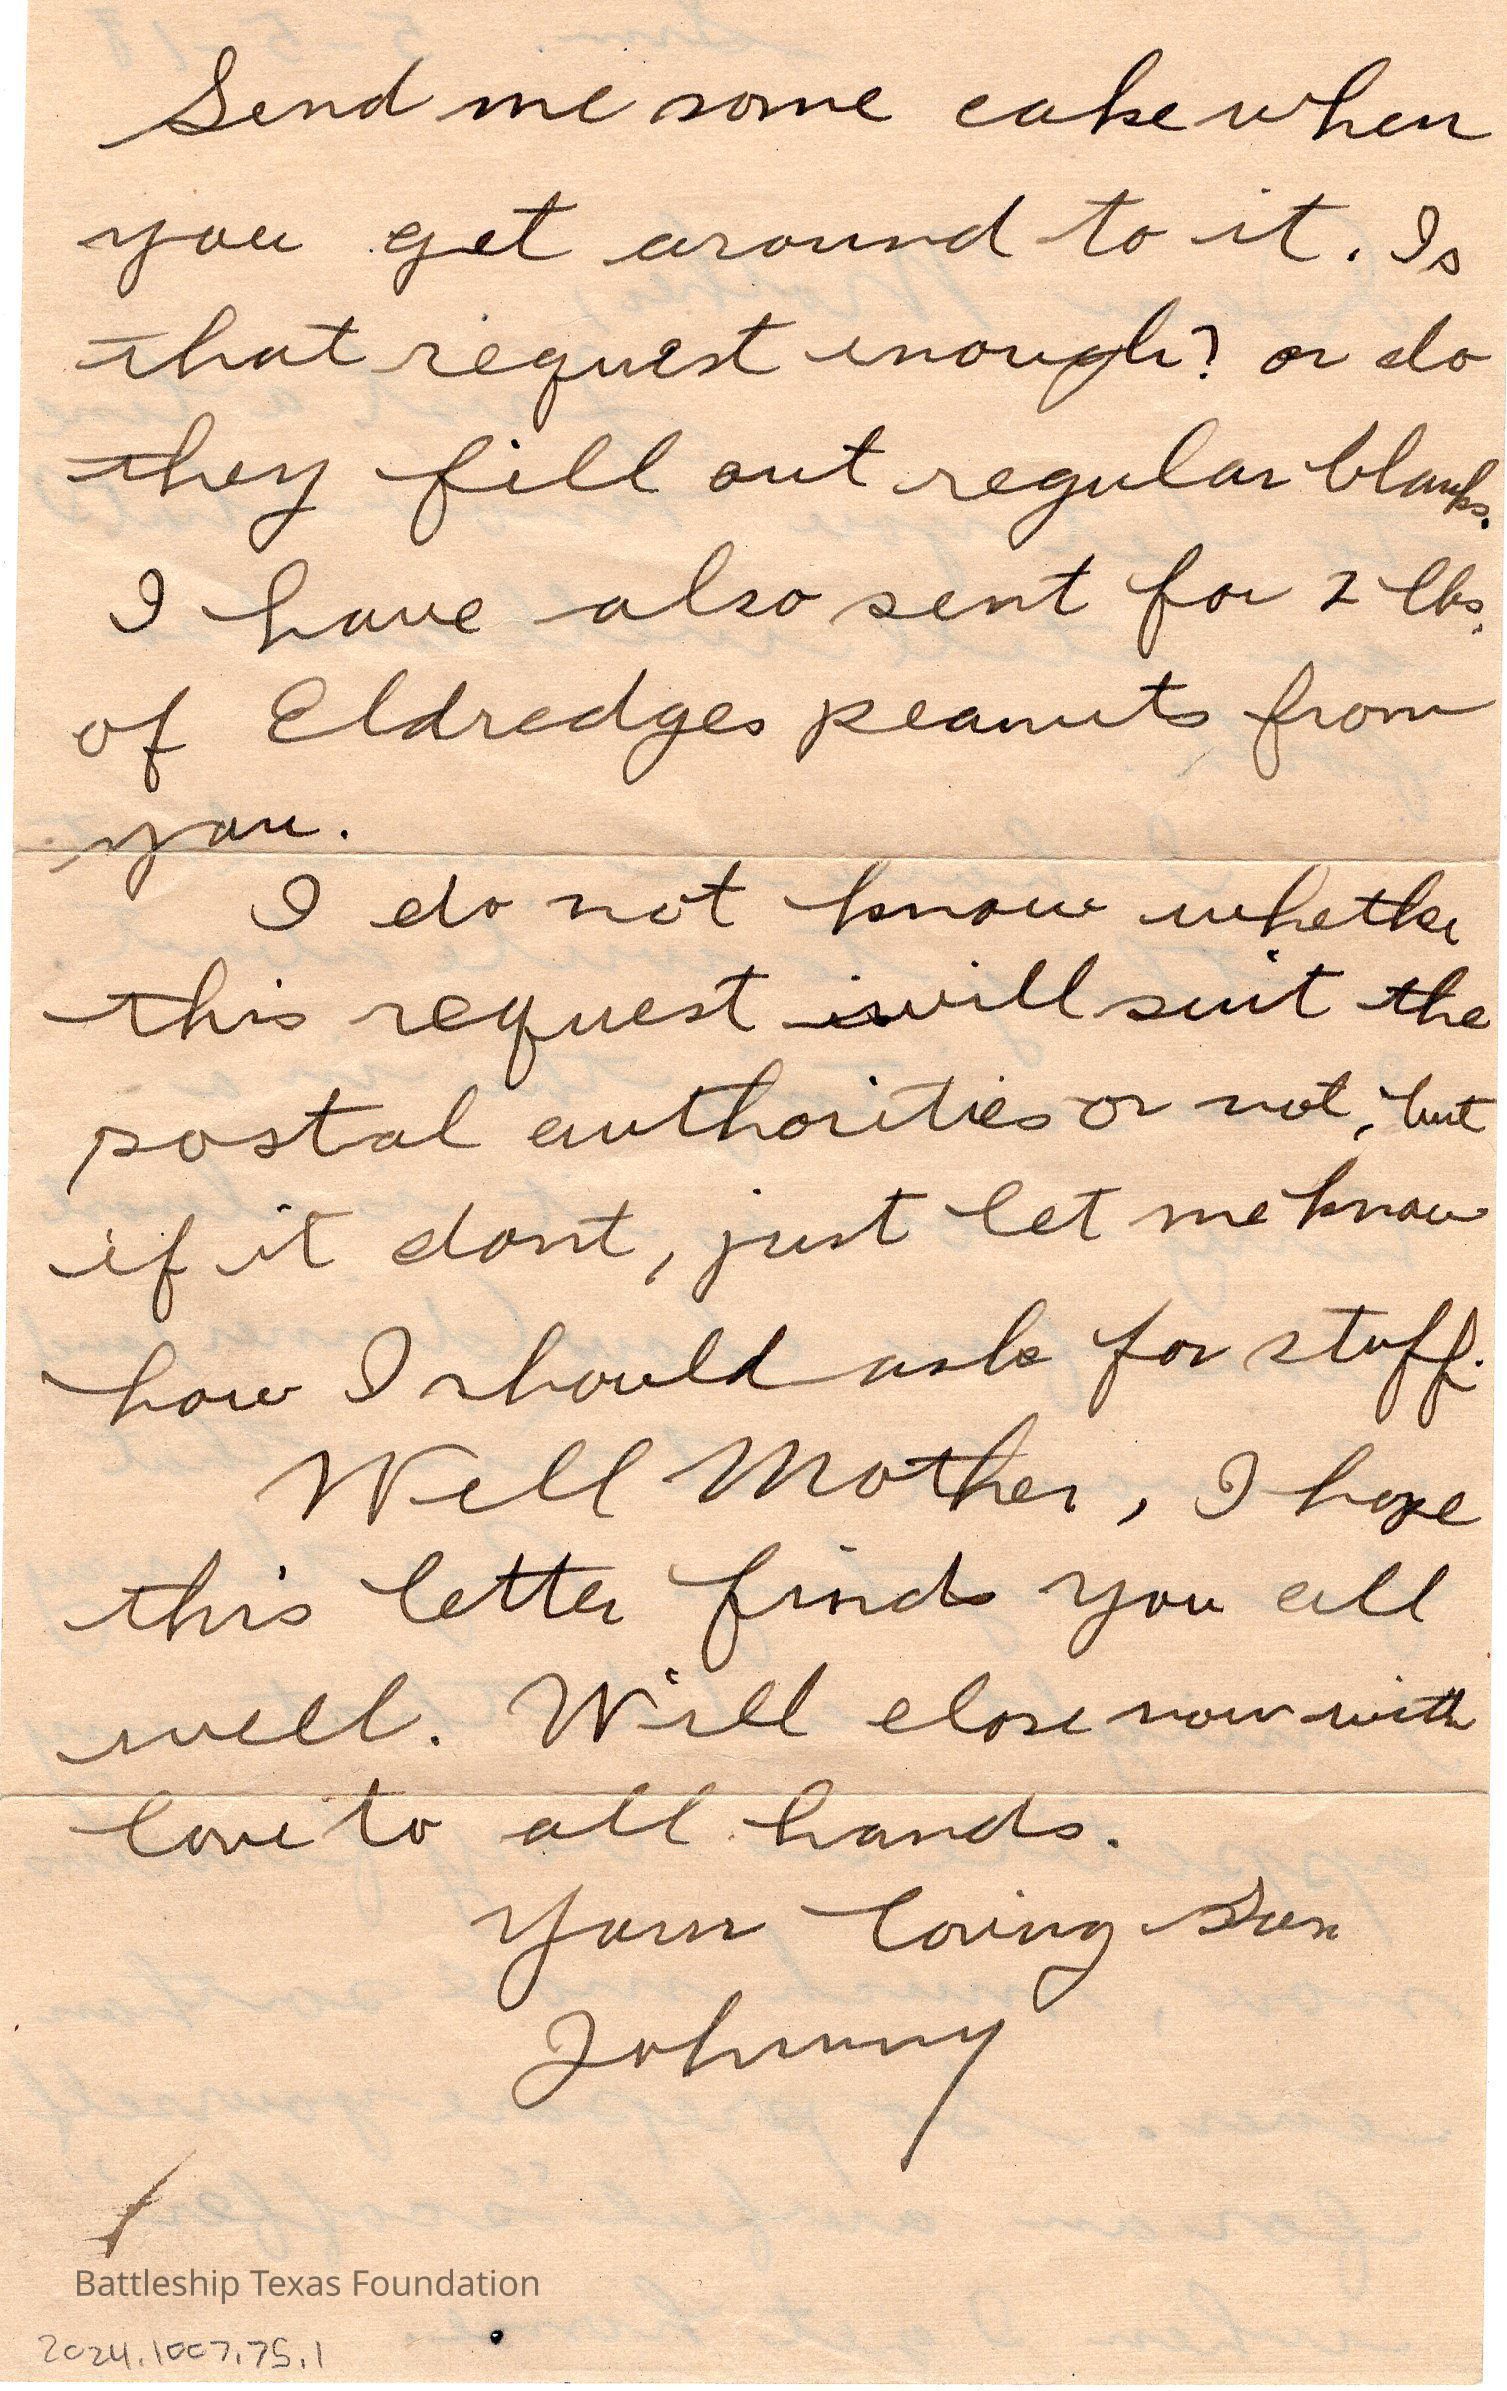 Send me some cake when
you get around to it. Is
that request enough? or do
they fill out regular blanks.
I have also sent for 2 lbs.
of Eldredges peanuts from
you.
I do not know whether
this request will suit the
postal authorities or not, but
if it dont, just let me know
how I should ask for stuff.
Well Mother, I hope
this letter finds you all
well. Will close now with
love to all hands.
Your loving Son
Johnny
Battleship Texas Foundation
2024.1007.75.1